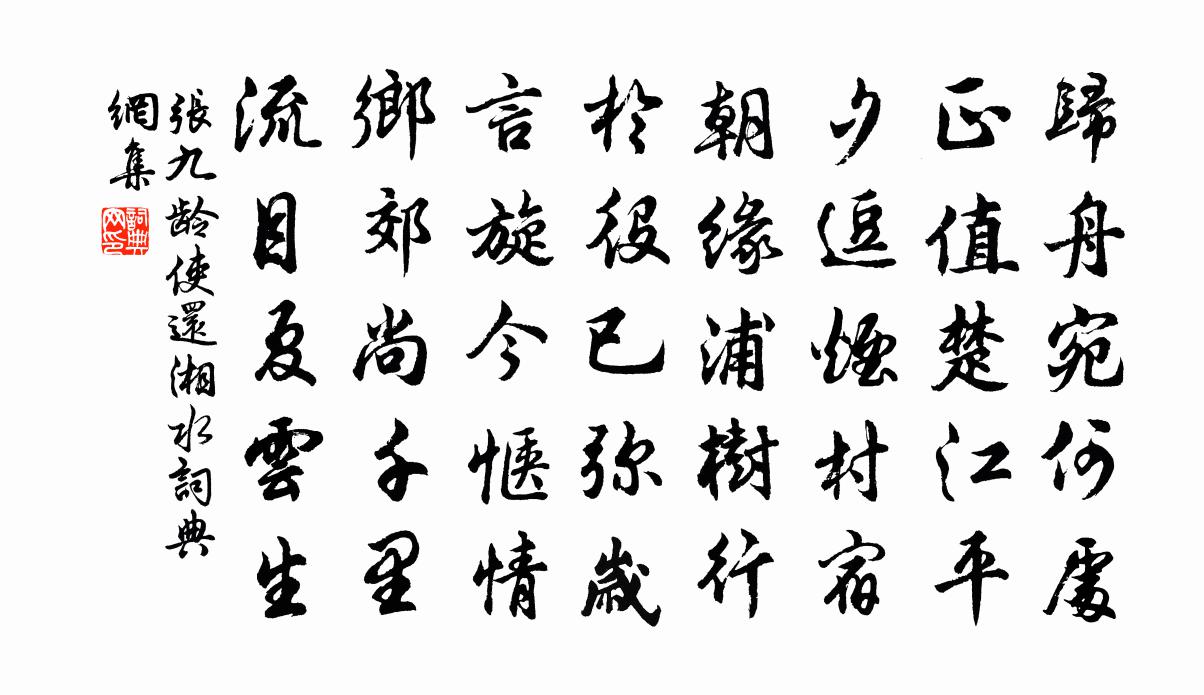 歸舟宛何處
正值楚江平
夕逗煙村宿
朝緣浦樹行
於役已弥歲
言旋今愜情
鄉郊尚千里
流目夏雲生
張九齡使還湘水詞典
網集
詞典
网印